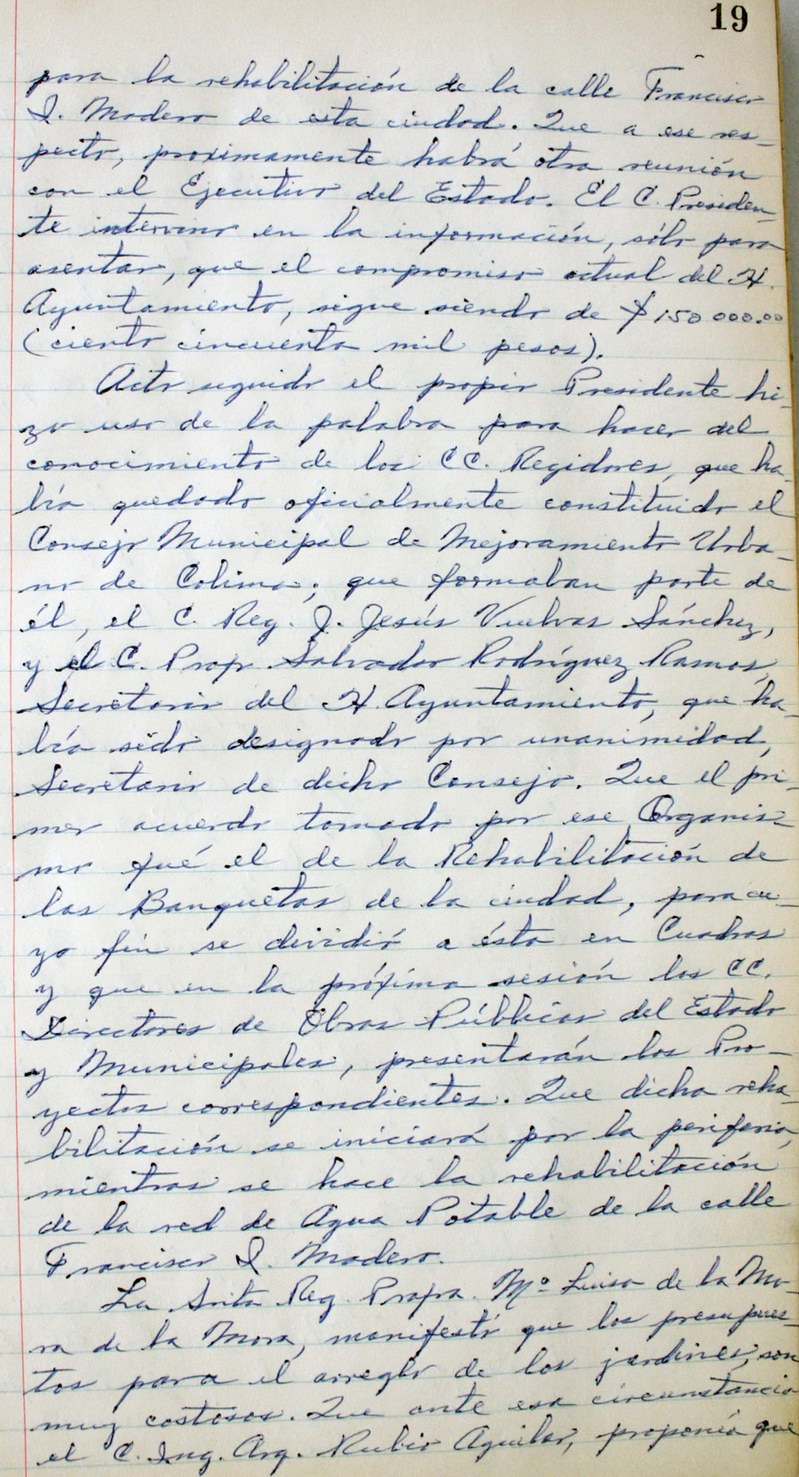 19
para la rehabilitación de la calle Francisco
I. Madero de esta ciudad. Que a ese res-
pecto, proximamente habrá otra reunión
con el Ejecutivo del Estado. El C. Presiden-
te intervino en la información, sólo para
asentar, que el compromiso actual del H.
Ayuntamiento, sigue siendo de $150 000.00
(ciento cincuenta mil pesos).
Acto seguido el propio Presidente hi-
zo uso de la palabra para hacer del
conocimiento de los CC. Regidores, que ha-
bía quedado oficialmente constituido el
Consejo Municipal de Mejoramiento Urba-
no de Colima; que formaban parte de
él, el C. Reg. J. Jesús Vuelvas Sánchez,
y el C. Profr. Salvador Rodríguez Ramos,
Secretario del H. Ayuntamiento, que ha-
bía sido designado por unanimidad,
Secretario de dicho Consejo. Que el pri-
mer acuerdo tomado por ese Organis-
mo fué el de la Rehabilitación de
las Banquetas de la ciudad, para cu-
yo fin se dividió a ésta en Cuadros
y que en la próxima sesión los CC.
Directores de Obras Públicas del Estado
y Municipales, presentarán los Pro-
yectos correspondientes. Que dicha reha-
bilitación se iniciará por la periferia,
mientras se hace la rehabilitación
de la red de Agua Potable de la calle
Francisco I. Madero.
La Srita Reg. Profra. Mª Luisa de la Mo-
ra de la Mora, manifestó que los presupues-
tos para el arreglo de los jardines, son
muy costosos. Que ante esa circunstancia
el C. Ing. Arq. Rubio Aguilar, proponía que